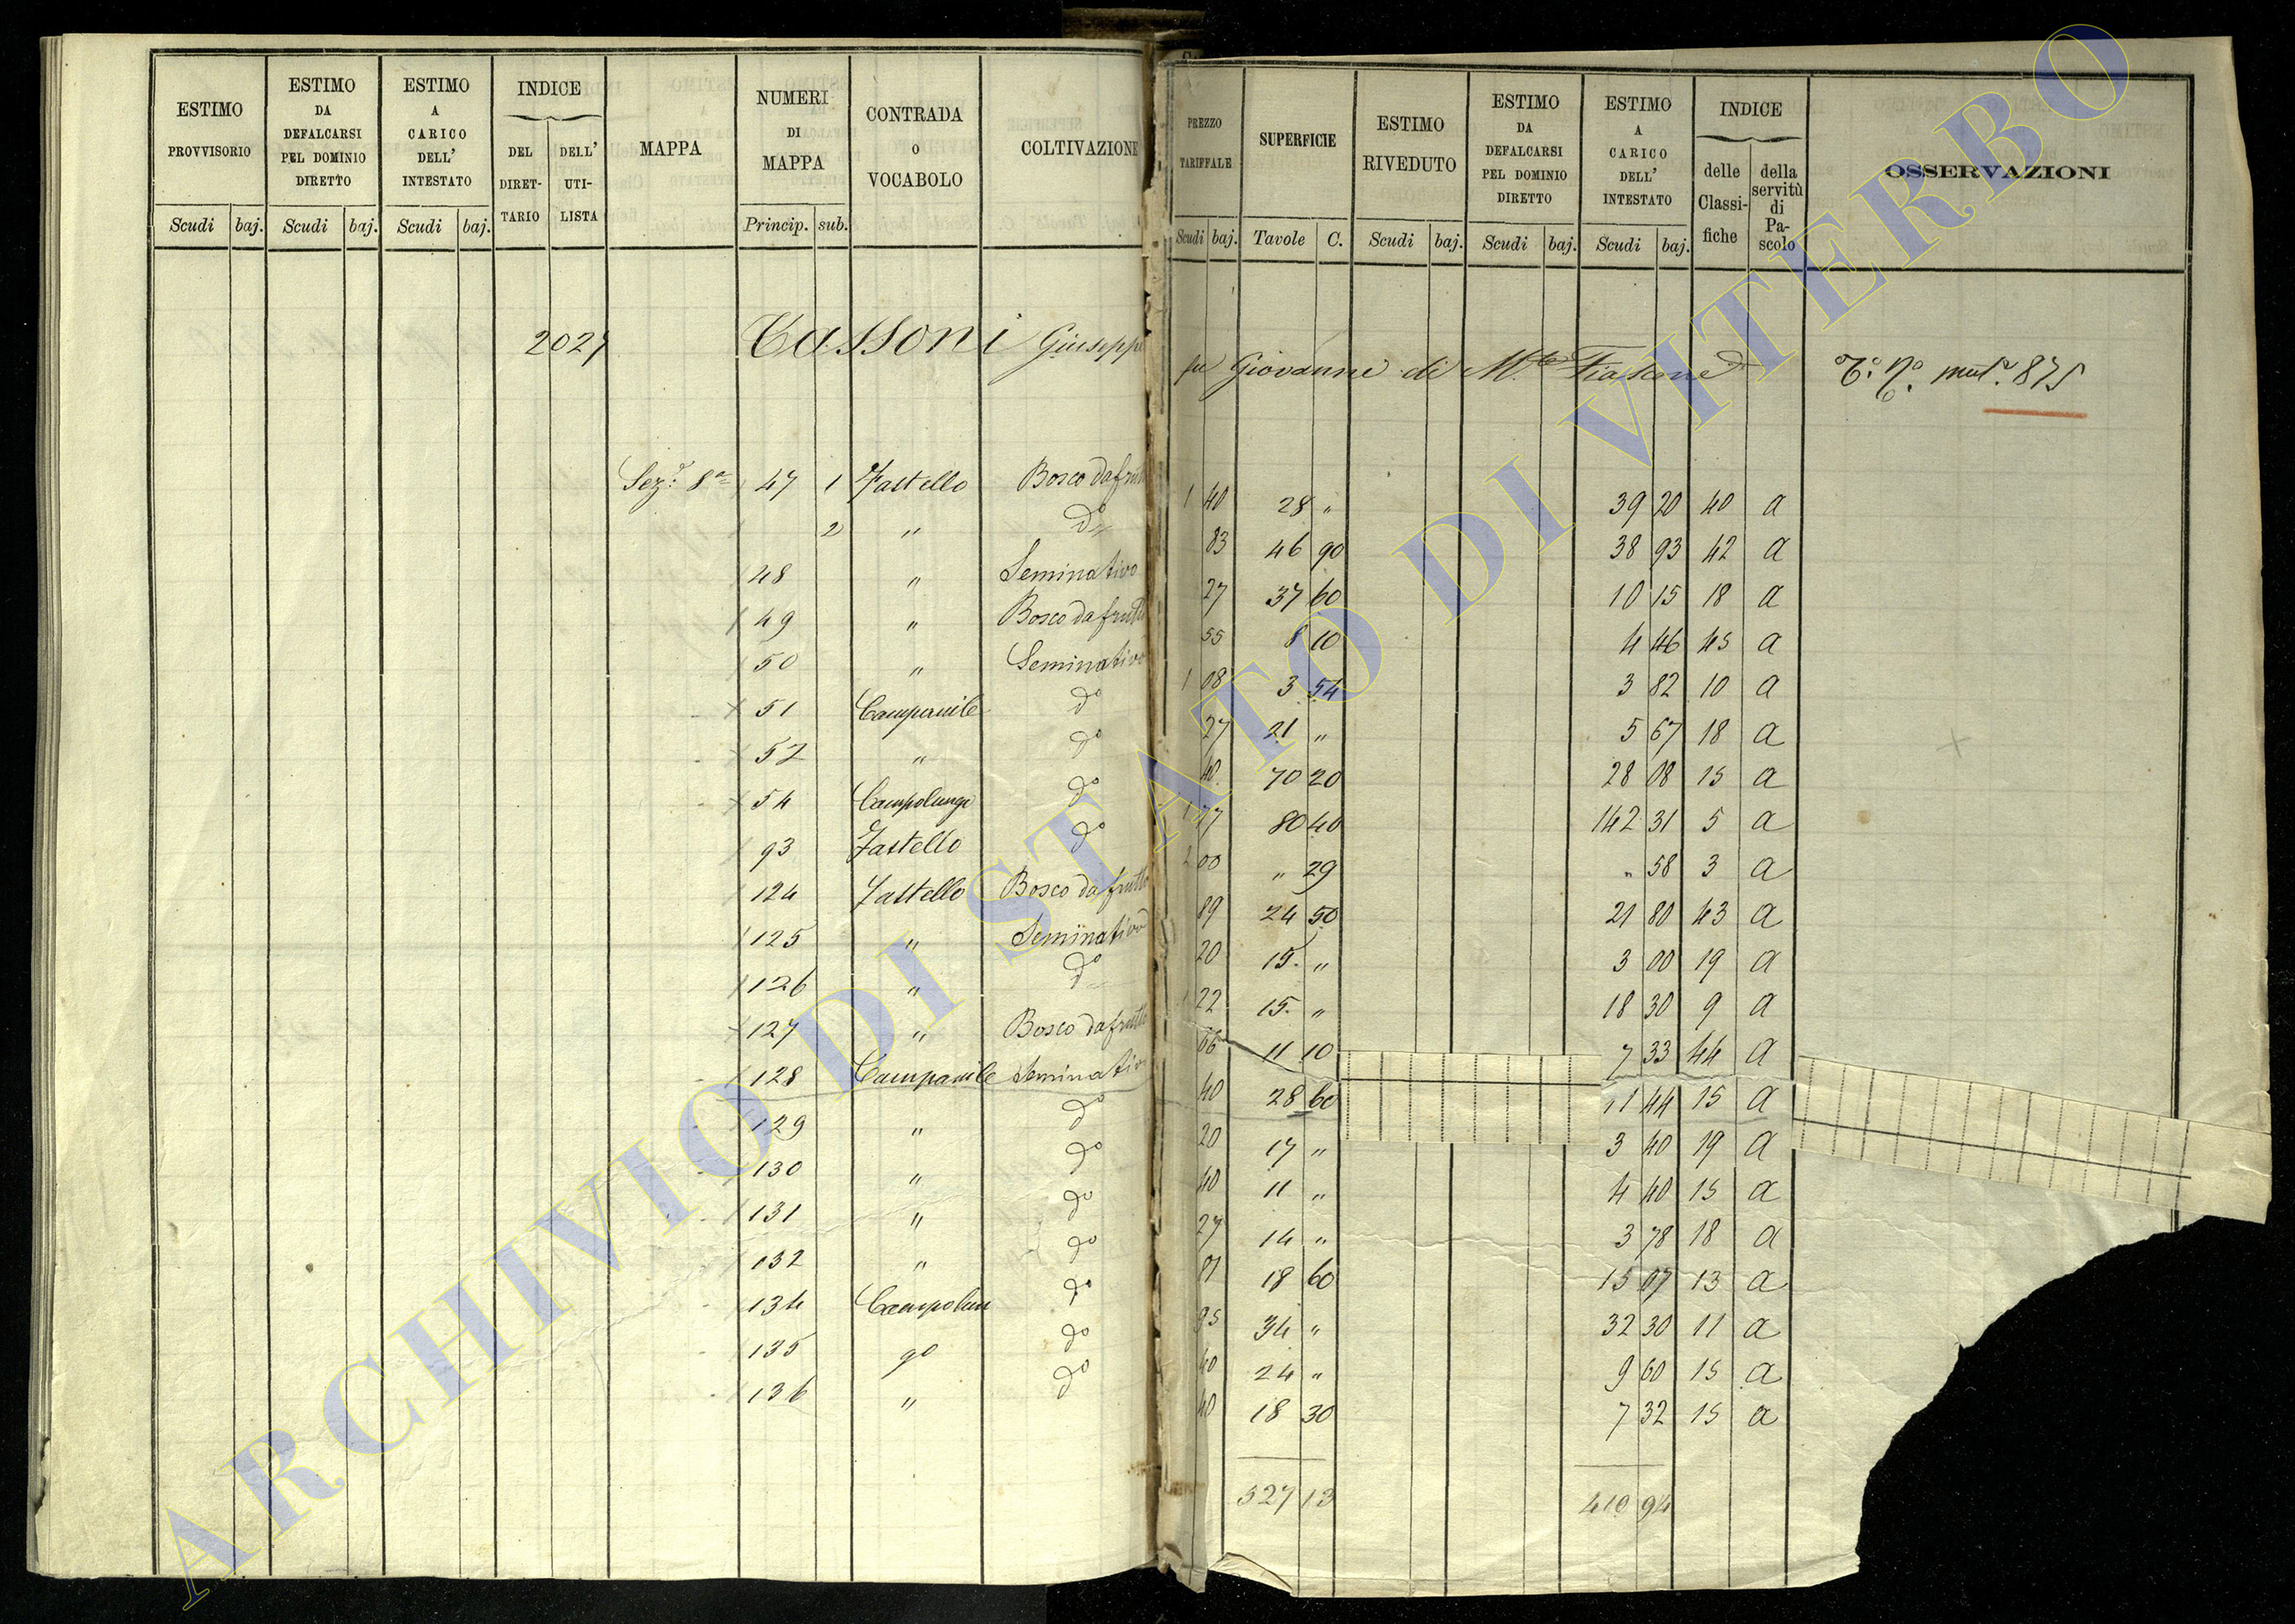 ESTIMO PROVVISORIO | ESTIMO DA DEFALCARSI PEL DOMINIO DIRETTO | ESTIMO A CARICO DELL' INTESTATO | INDICE DEL DIRET-TARIO | DELL' UTI-LISTA | MAPPA | NUMERI DI MAPPA | CONTRADA O VOCABOLO | COLTIVAZIONE | PREZZO TARIFFALE | SUPERFICIE | ESTIMO RIVEDUTO | ESTIMO DA DEFALCARSI PEL DOMINIO DIRETTO | ESTIMO A CARICO DELL' INTESTATO | INDICE delle Classi-fiche | della servitù di Pa-scolo | OSSERVAZIONI
Scudi | baj. | Scudi | baj. | Scudi | baj. | Princip. | sub. | Scudi | baj. | Tavole | C. | Scudi | baj. | Scudi | baj. | Scudi | baj.
2027 Tassoni Giuseppe fu Giovanni di M.te Fiascone mut.a 875
Sez.e 8a 47 1 Zastello Bosco da frutto 1 40 28 " 39 20 40 a
2 " do 83 46 90 38 93 42 a
48 " Seminativo 27 37 60 10 15 18 a
49 " Bosco da frutto 55 8 10 4 46 45 a
50 " Seminativo 1 08 3 54 3 82 10 a
51 Campanile do 27 21 " 5 67 18 a
52 " do 40 70 20 28 08 15 a
54 Campolungo do 1 77 80 40 142 31 5 a
93 Zastello do 2 00 " 29 " 58 3 a
124 Zastello Bosco da frutto 89 24 50 21 80 43 a
125 " Seminativo 20 15 " 3 00 19 a
126 " do 1 22 15 " 18 30 9 a
127 " Bosco da frutto 66 11 10 7 33 44 a
128 Campanile Seminativo 40 28 60 11 44 15 a
129 " do 20 17 " 3 40 19 a
130 " do 40 11 " 4 40 15 a
131 " do 27 14 " 3 78 18 a
132 " do 81 18 60 15 07 13 a
134 Campolun do 95 34 " 32 30 11 a
135 go do 40 24 " 9 60 15 a
136 " do 40 18 30 7 32 15 a
527 13 410 94
ARCHIVIO DI STATO DI VITERBO